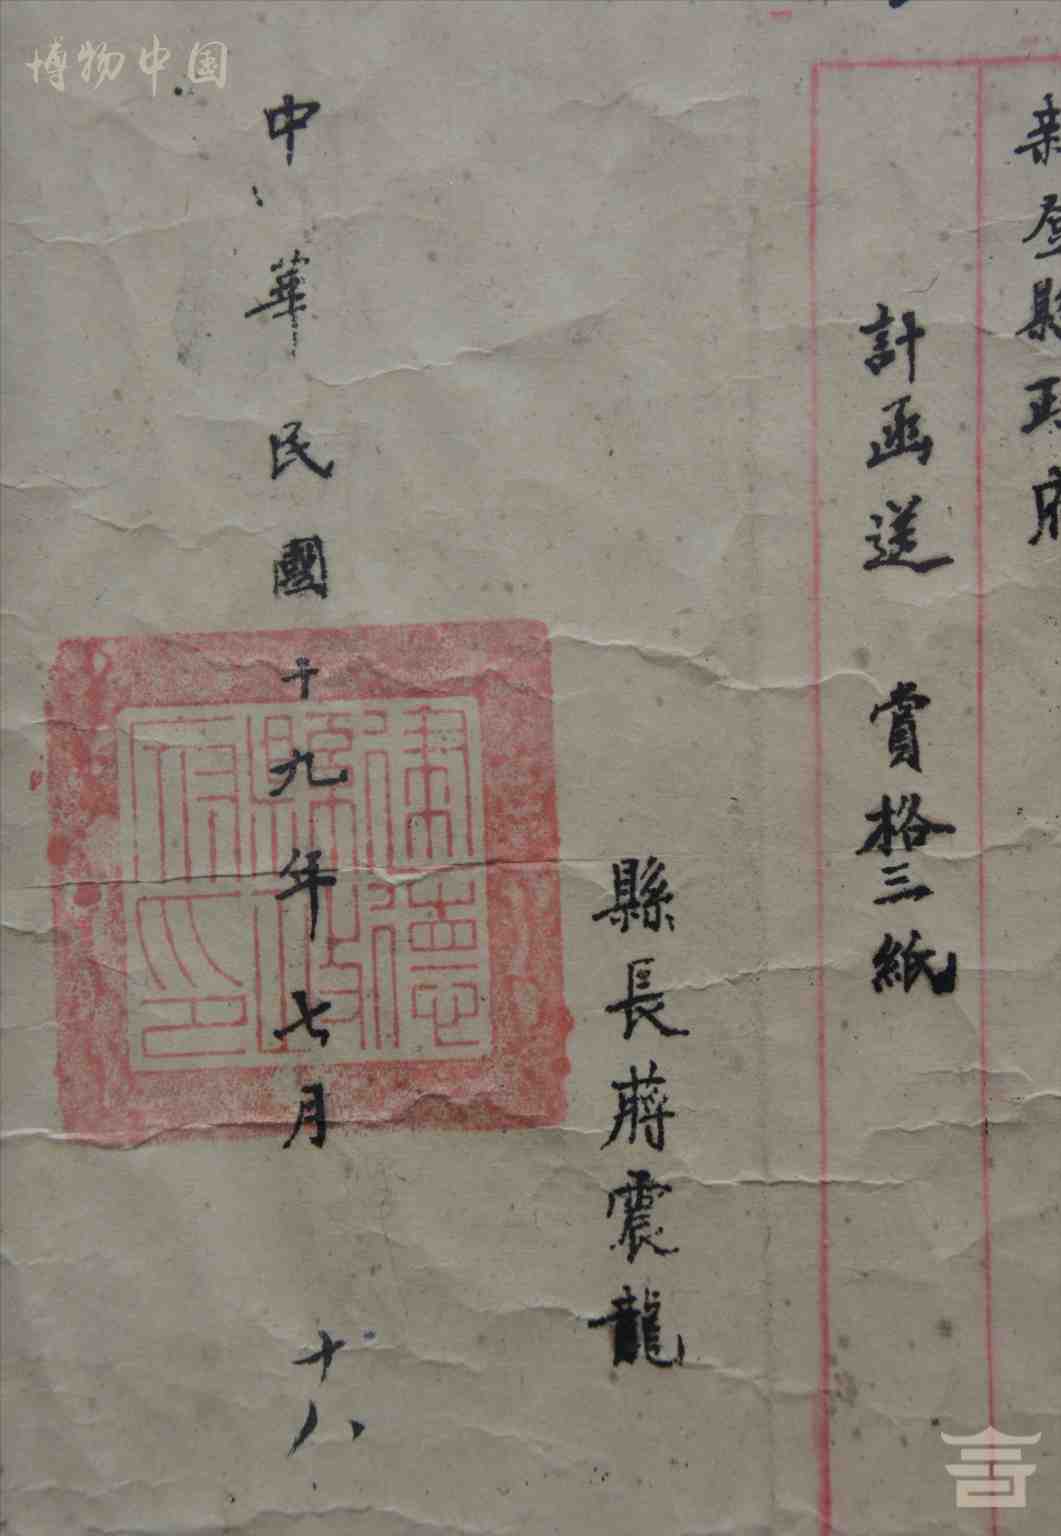 新登縣政府
計函送 賞格三紙
縣長蔣震龍
中華民國十九年七月十八
建德縣政府印
博物中国